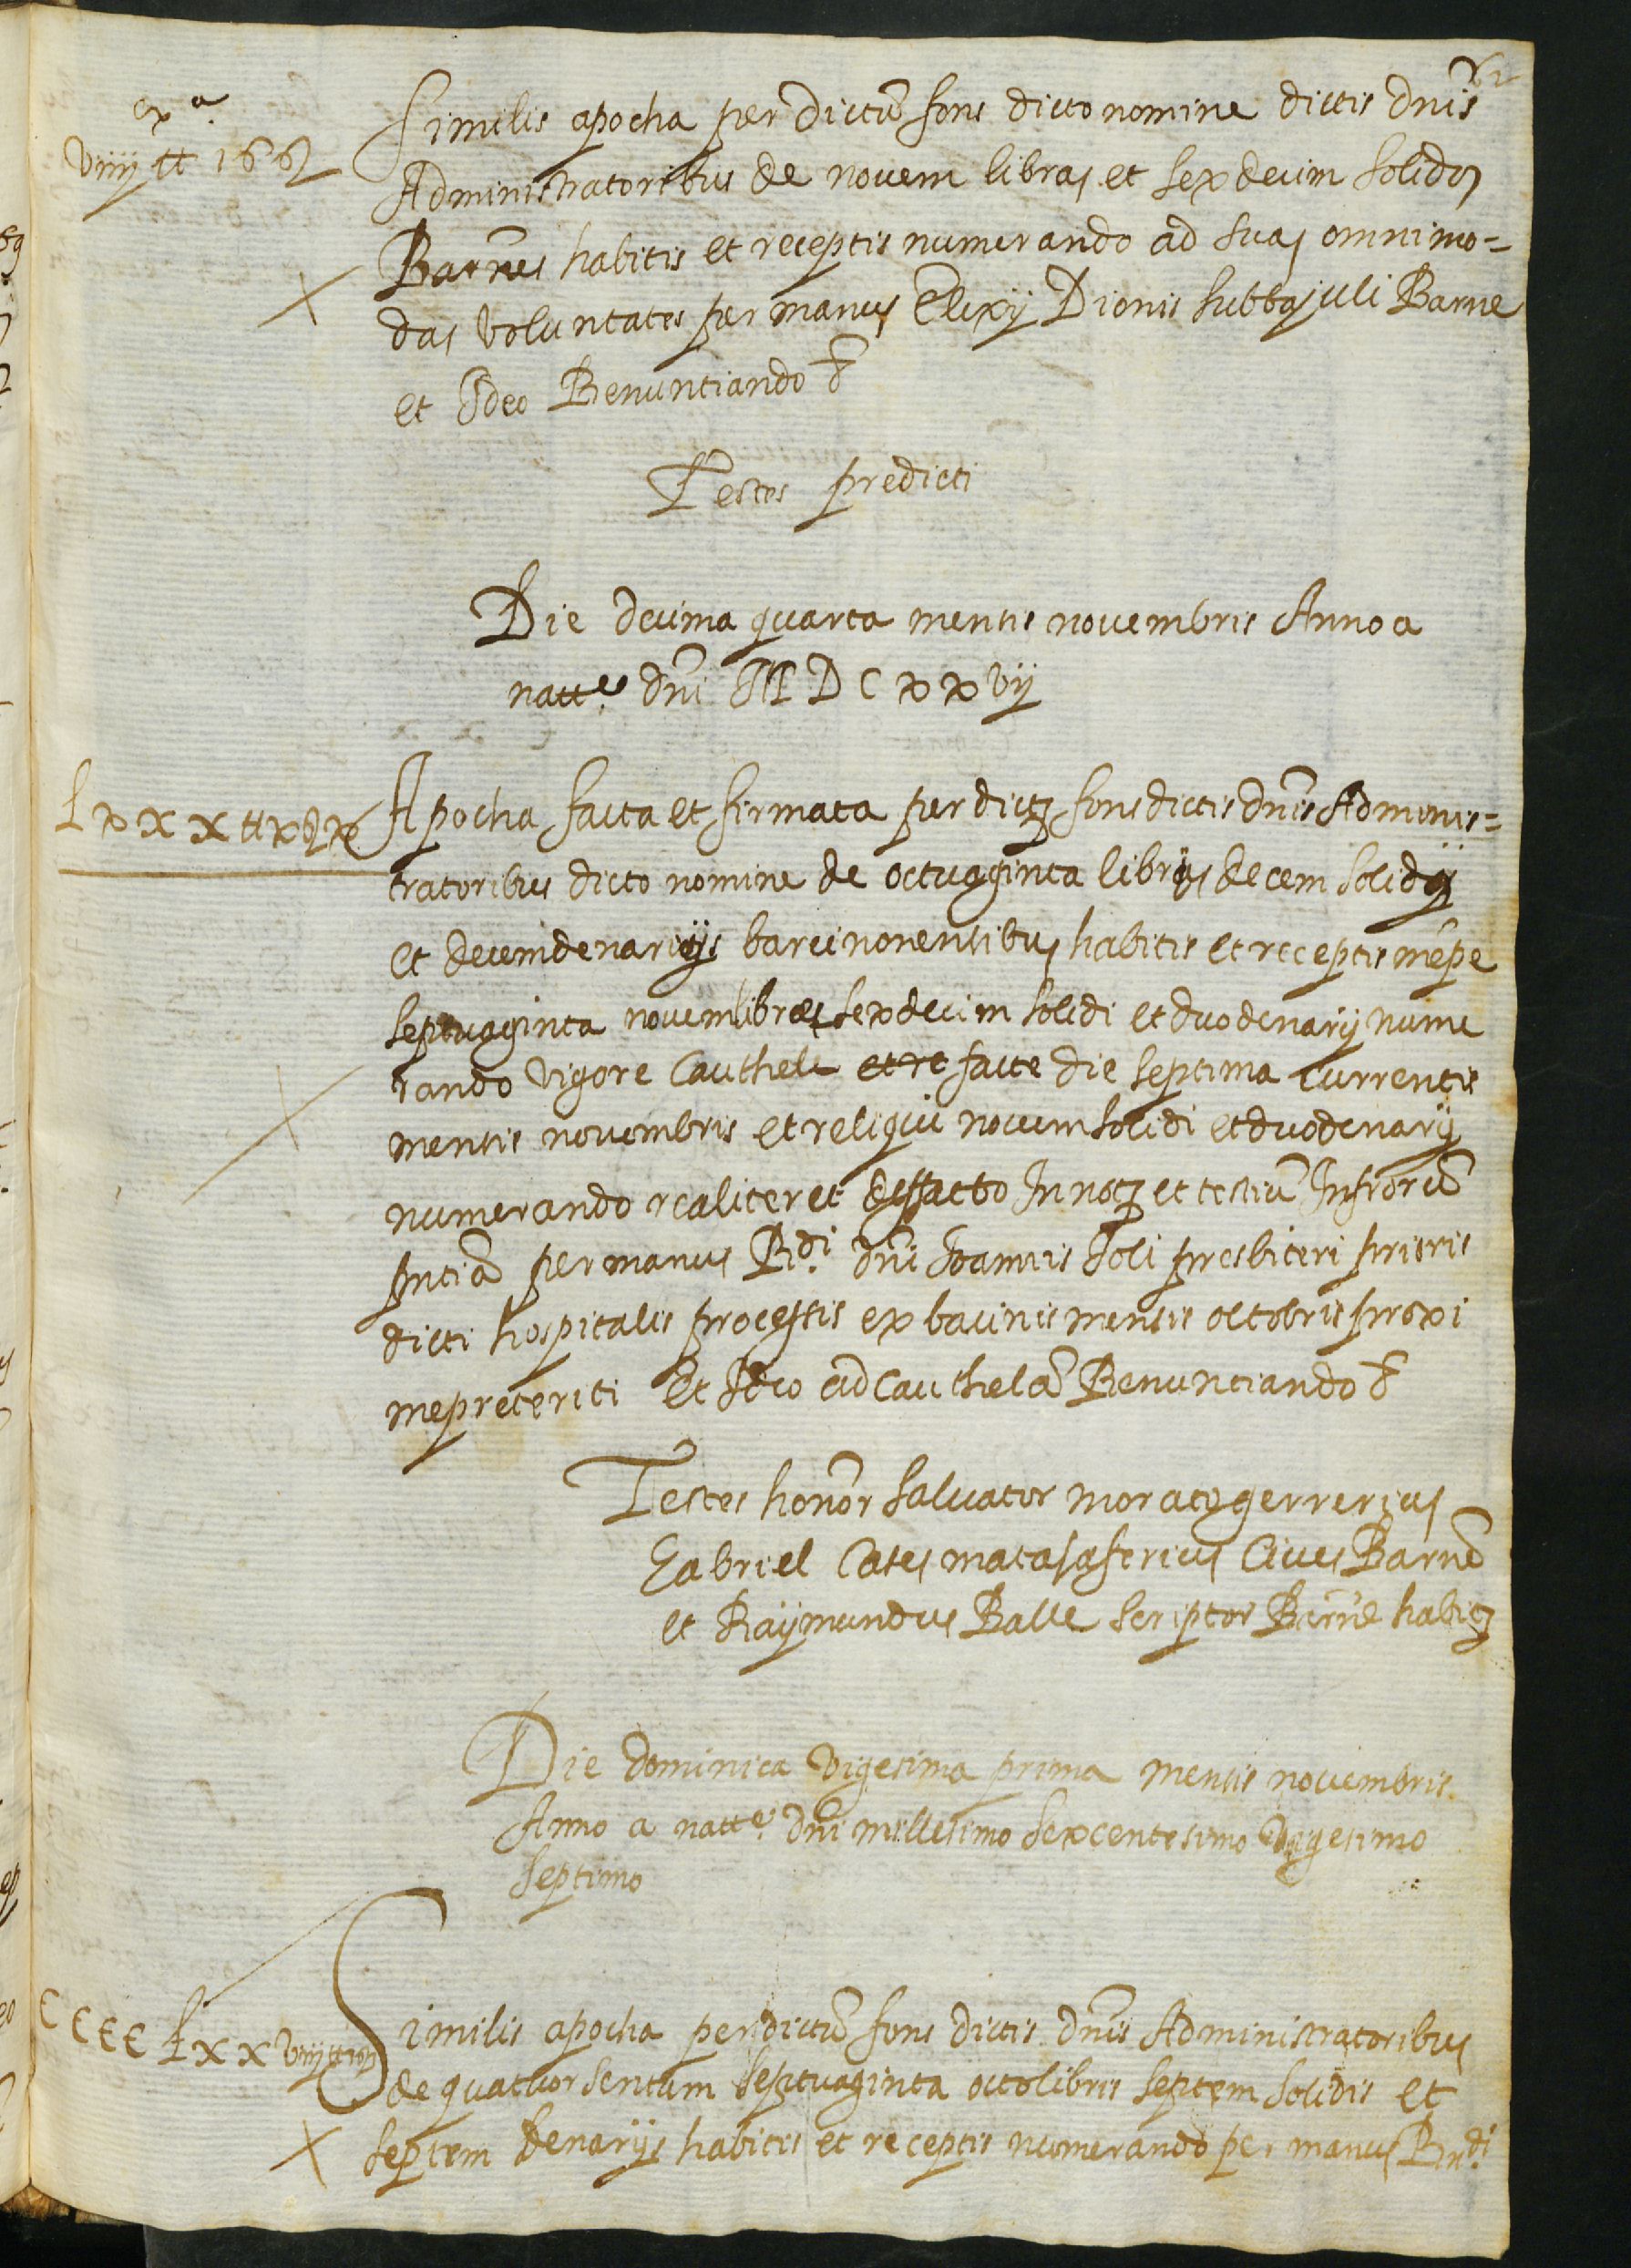 Similis apocha per dictũ fons dicto nomine dictis dñis
Administratoribus de novem libras et sexdecim solidos
Barñes habitis et receptis numerando ad suas omnimo=
das voluntates per manus Elixij Dionis subbajuli Barne
et Ideo Renunciando &
Testes predicti
Die decima quarta mensis novembris Anno a
natte. dñi MDCxxvij
Lxxx tt x
Apocha facta et firmata per dictz fons dictis dñis Adminis=
tratoribus dicto nomine de octuaginta librijs decem solidos
et decemdenarijs barcinonensibus habitis et receptis nẽpe
septuaginta novemlibras sexdecim solidi et duodenarij nume
rando vigore Cauthele et re facte die septima currentis
mensis novembris et reliqui novemsolidi et duodenarij
numerando realiter et deffacto In notz et testiũ Infrõrũ
pñtiã per manus Rdi. dñi Joannis Soli presbiteri prioris
dicti hospitalis processis ex bacinis mensis octobris proxi
mepreteriti Et Ideo ad cauthelã Renunciando &
Testes honõr Salvator morato gerrerius
Gabriel Cases matalaferius Cives Barnẽ
et Raymundus Balle scriptor Barñe habitz
Die dominica vigesima prima mensis novembris
Anno a natte. dñi millesimo sexcentesimo vigesimo
septimo
CCCC Lxxviij tt
Similis apocha per dictũ fons dictis dñis Administratoribus
de quatuor sentum septuaginta octolibris septem solidis et
septem denarijs habitis et receptis numerando per manus Rndi.